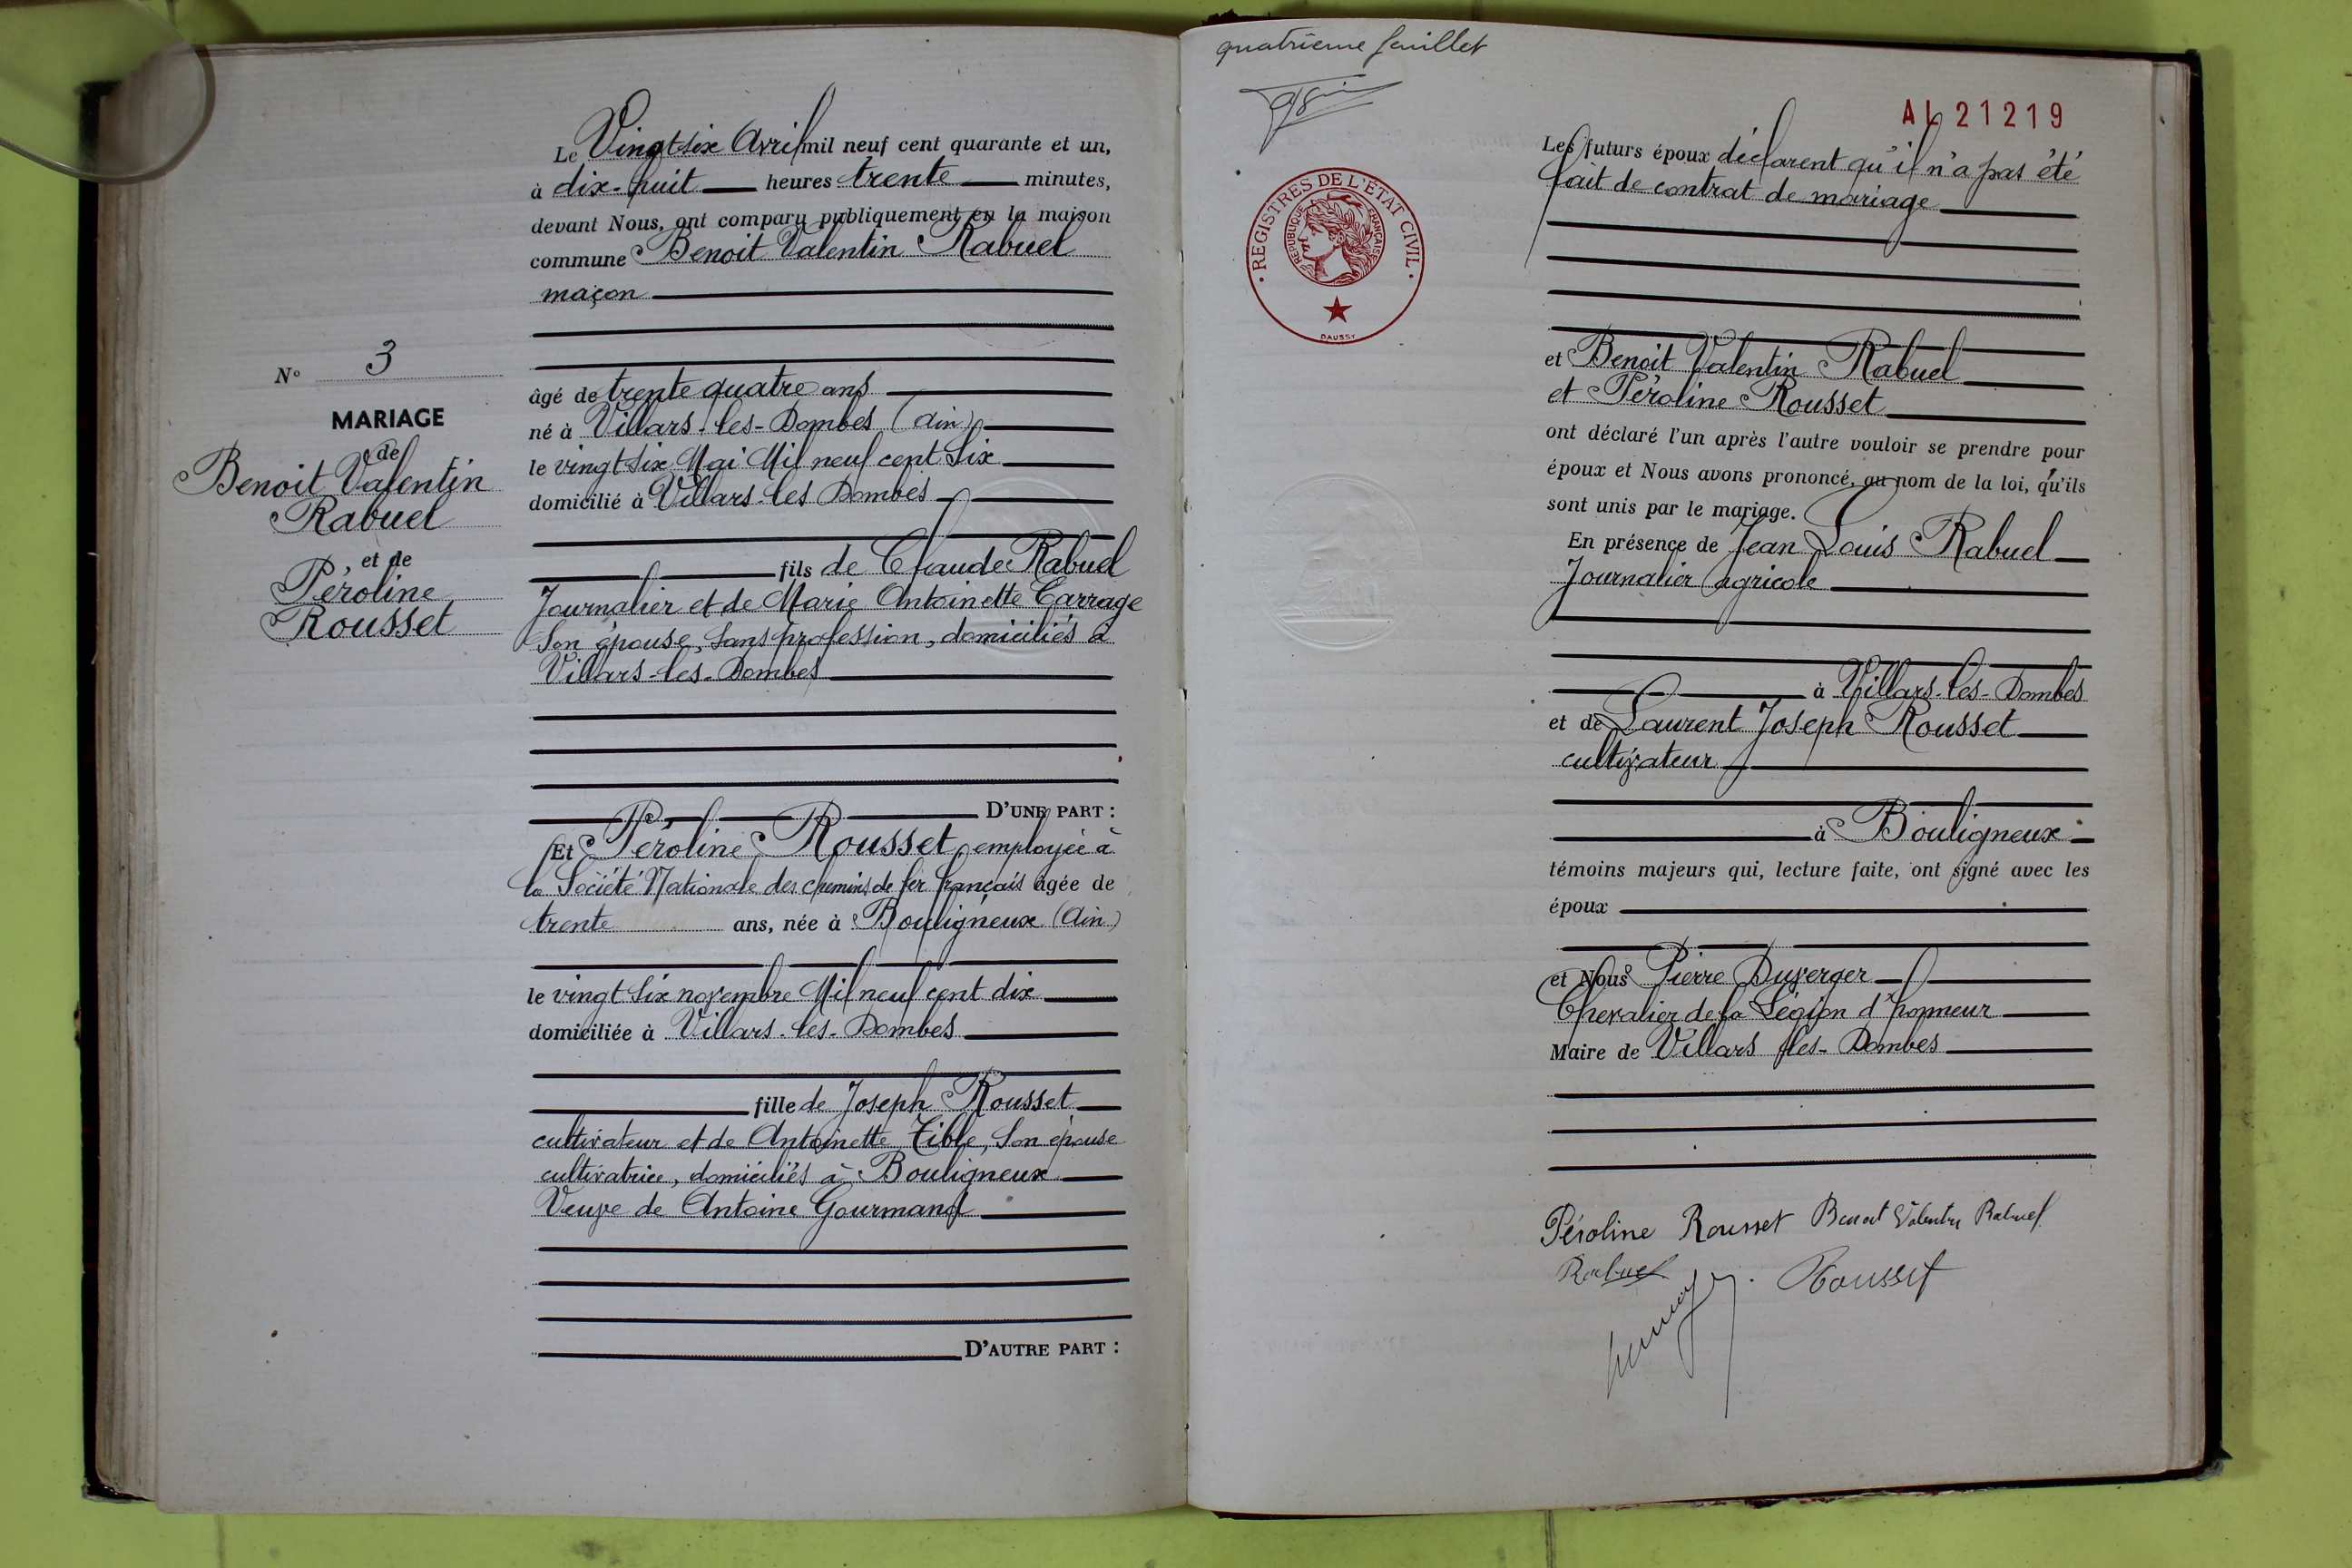 Le Vingt six Avril mil neuf cent quarante et un,
à dix-huit heures trente minutes,
devant Nous, ont comparu publiquement en la maison
commune Benoit Valentin Rabuel
maçon
N° 3
MARIAGE
de
Benoit Valentin
Rabuel
et de
Péroline
Rousset
âgé de trente quatre ans
né à Villars-les-Dombes (Ain)
le vingt six Mai Mil neuf cent six
domicilié à Villars-les Dombes
fils de Claude Rabuel
Journalier et de Marie Antoinette Carrage
son épouse, sans profession, domiciliés à
Villars-les-Dombes
D'UNE PART :
Et Péroline Rousset, employée à
la Société Nationale des chemins de fer français âgée de
trente ans, née à Bouligneux (Ain)
le vingt six novembre Mil neuf cent dix
domiciliée à Villars-les-Dombes
fille de Joseph Rousset
cultivateur et de Antoinette Tible, son épouse
cultivatrice, domiciliés à Bouligneux
Veuve de Antoine Gourmand
D'AUTRE PART :
quatrième feuillet
AL 21219
REGISTRES DE L'ÉTAT CIVIL
RÉPUBLIQUE FRANÇAISE
DAUSSY
Les futurs époux déclarent qu'il n'a pas été
fait de contrat de mariage
et Benoit Valentin Rabuel
et Péroline Rousset
ont déclaré l'un après l'autre vouloir se prendre pour
époux et Nous avons prononcé, au nom de la loi, qu'ils
sont unis par le mariage.
En présence de Jean Louis Rabuel
Journalier agricole
à Villars-les-Dombes
et de Laurent Joseph Rousset
cultivateur
à Bouligneux
témoins majeurs qui, lecture faite, ont signé avec les
époux
et Nous Pierre Duverger
Chevalier de la Légion d'honneur
Maire de Villars les-Dombes
Péroline Rousset Benoit Valentin Rabuel
Rabuel
Rousset